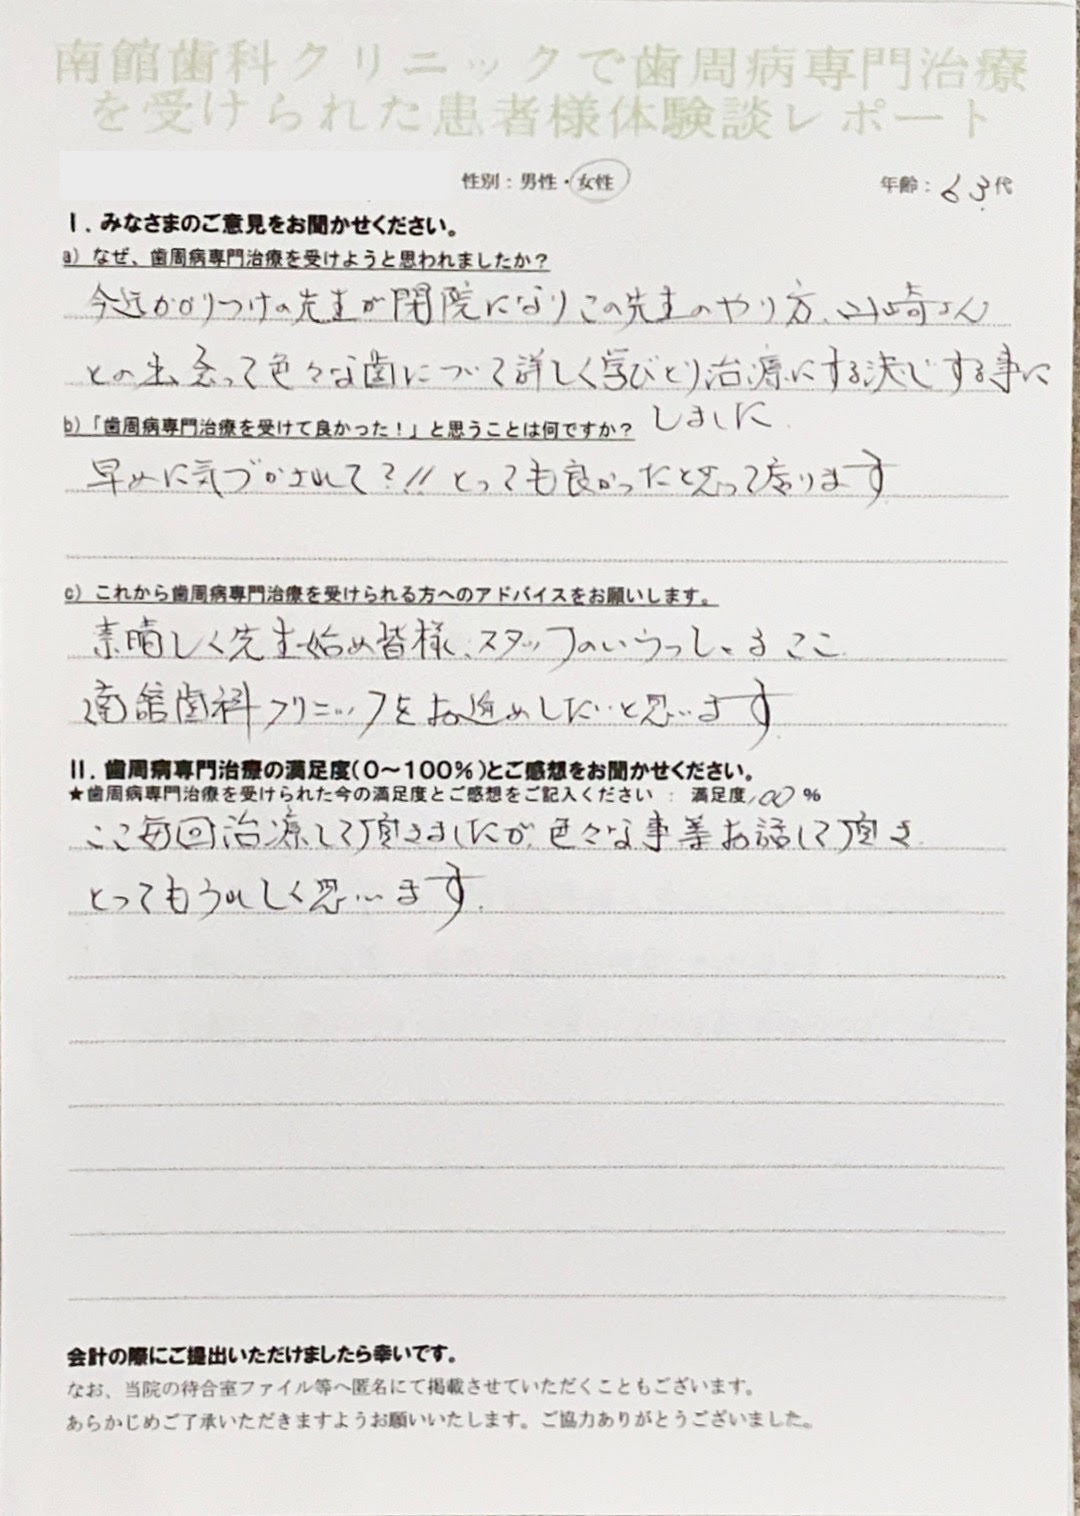 南館歯科クリニックで歯周病専門治療
を受けられた患者様体験談レポート
性別：男性・女性
年齢：63代
Ⅰ．みなさまのご意見をお聞かせください。
a）なぜ、歯周病専門治療を受けようと思われましたか？
今迄かかりつけの先生が閉院になりこの先生のやり方、山崎さん
との出会って色々な歯について詳しく学びとり治療にする決じする事に
しました
b）「歯周病専門治療を受けて良かった！」と思うことは何ですか？
早めに気づかされて？!! とっても良かったと思って居ります
c）これから歯周病専門治療を受けられる方へのアドバイスをお願いします。
素晴しく先生始め皆様、スタッフのいらっしゃるここ
南館歯科クリニックをお進めしたいと思います
Ⅱ．歯周病専門治療の満足度（0～100％）とご感想をお聞かせください。
★歯周病専門治療を受けられた今の満足度とご感想をご記入ください ： 満足度100％
ここ毎回治療して頂きましたが、色々な事等お話して頂き
とってもうれしく思います。
会計の際にご提出いただけましたら幸いです。
なお、当院の待合室ファイル等へ匿名にて掲載させていただくこともございます。
あらかじめご了承いただきますようお願いいたします。ご協力ありがとうございました。